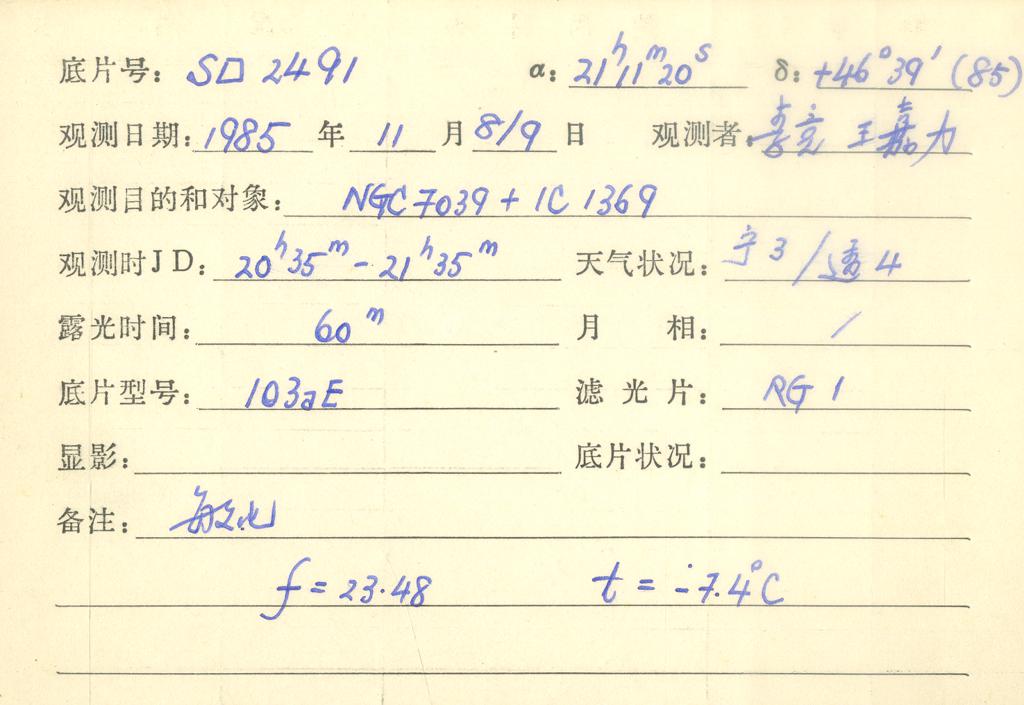 底片号: SD 2491 α: 21ʰ11ᵐ20ˢ δ: +46°39′(85)
观测日期: 1985 年 11 月 8/9 日 观测者: 王嘉力
观测目的和对象: NGC 7039 + IC 1369
观测时JD: 20ʰ35ᵐ - 21ʰ35ᵐ 天气状况: 宁3/透4
露光时间: 60ᵐ 月 相: /
底片型号: 103aE 滤光片: RG 1
显影: 底片状况:
备注: 敏化
f = 23.48 t = -7.4°C